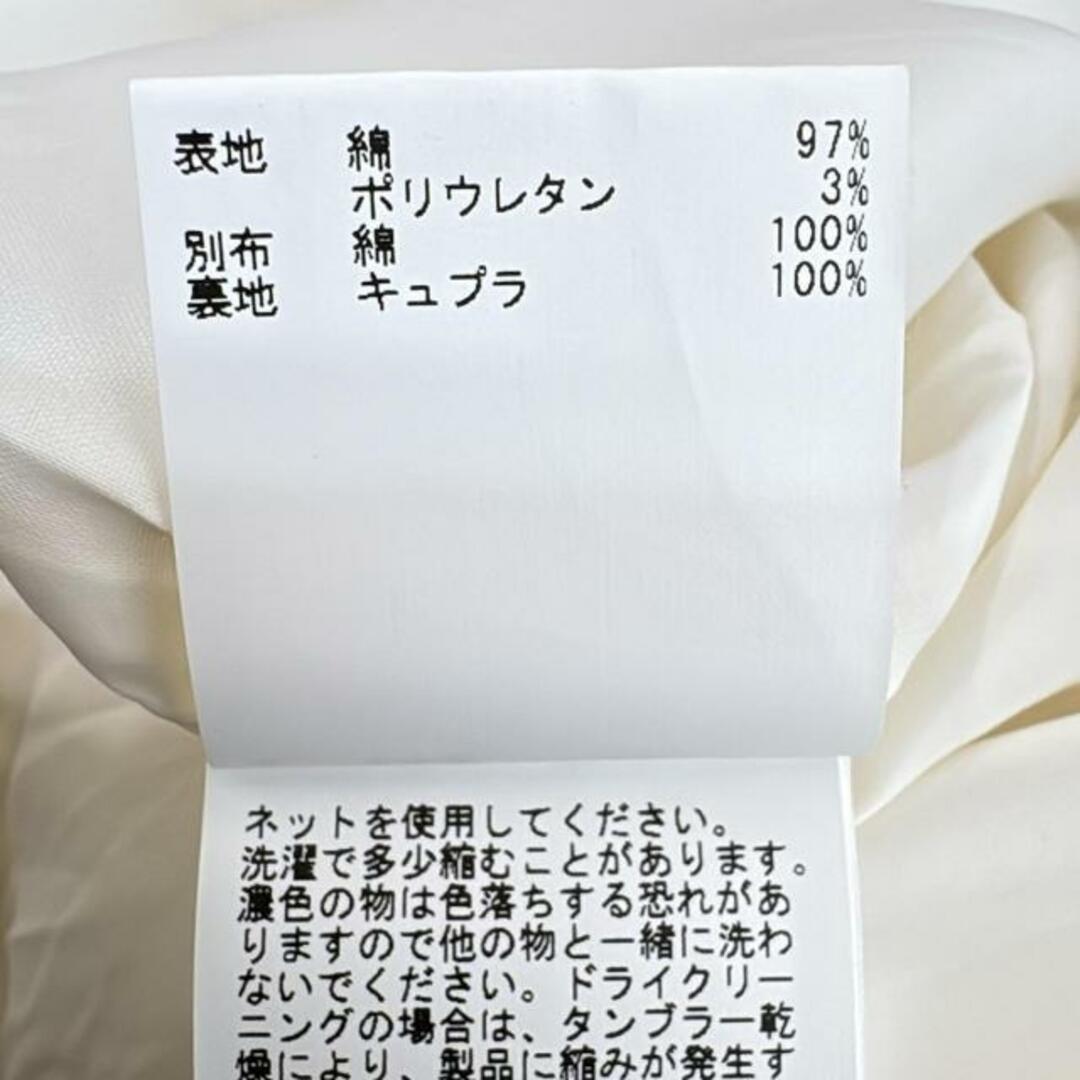 表地 綿 97%
ポリウレタン 3%
別布 綿 100%
裏地 キュプラ 100%
ネットを使用してください。
洗濯で多少縮むことがあります。
濃色の物は色落ちする恐れがあ
りますので他の物と一緒に洗わ
ないでください。ドライクリー
ニングの場合は、タンブラー乾
燥により、製品に縮みが発生す